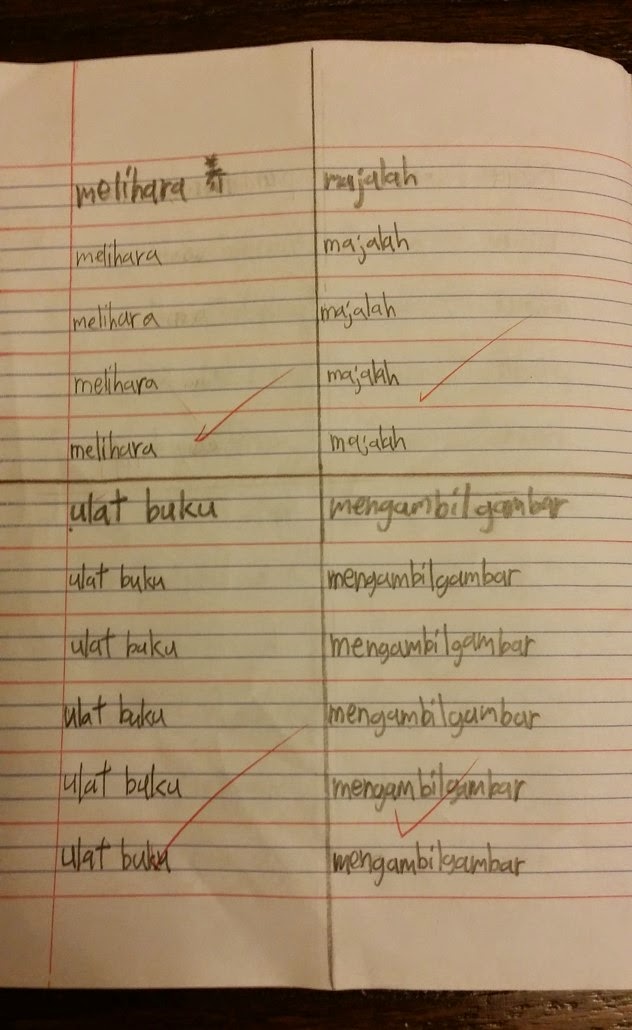 melihara 养
melihara
melihara
melihara
melihara
majalah
majalah
majalah
majalah
majalah
ulat buku
ulat buku
ulat buku
ulat buku
ulat buku
ulat buku
mengambilgambar
mengambilgambar
mengambilgambar
mengambilgambar
mengambilgambar
mengambilgambar